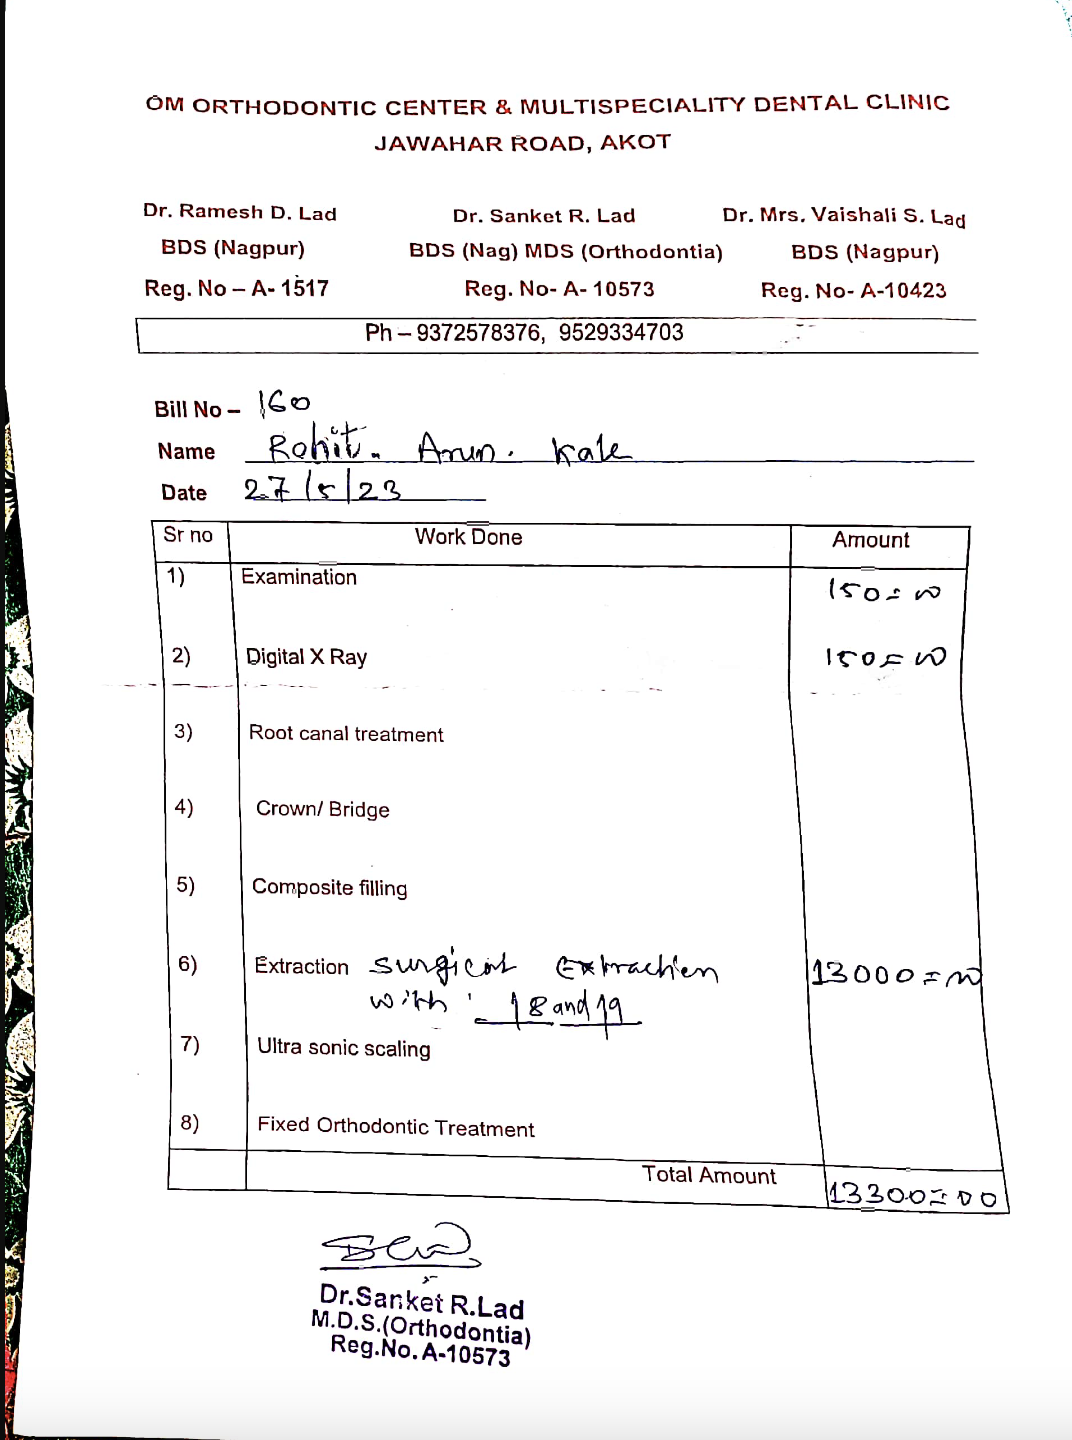 OM ORTHODONTIC CENTER & MULTISPECIALITY DENTAL CLINIC
JAWAHAR ROAD, AKOT
Dr. Ramesh D. Lad Dr. Sanket R. Lad Dr. Mrs. Vaishali S. Lad
BDS (Nagpur) BDS (Nag) MDS (Orthodontia) BDS (Nagpur)
Reg. No – A- 1517 Reg. No- A- 10573 Reg. No- A-10423
Ph – 9372578376, 9529334703
Bill No – 160
Name Rohit. Arun. Kale
Date 27/5/23
Sr no Work Done Amount
1) Examination 150=00
2) Digital X Ray 150=00
3) Root canal treatment
4) Crown/ Bridge
5) Composite filling
6) Extraction surgical Extraction 13000=00
with 18 and 19
7) Ultra sonic scaling
8) Fixed Orthodontic Treatment
Total Amount 13300=00
Dr.Sanket R.Lad
M.D.S.(Orthodontia)
Reg.No.A-10573